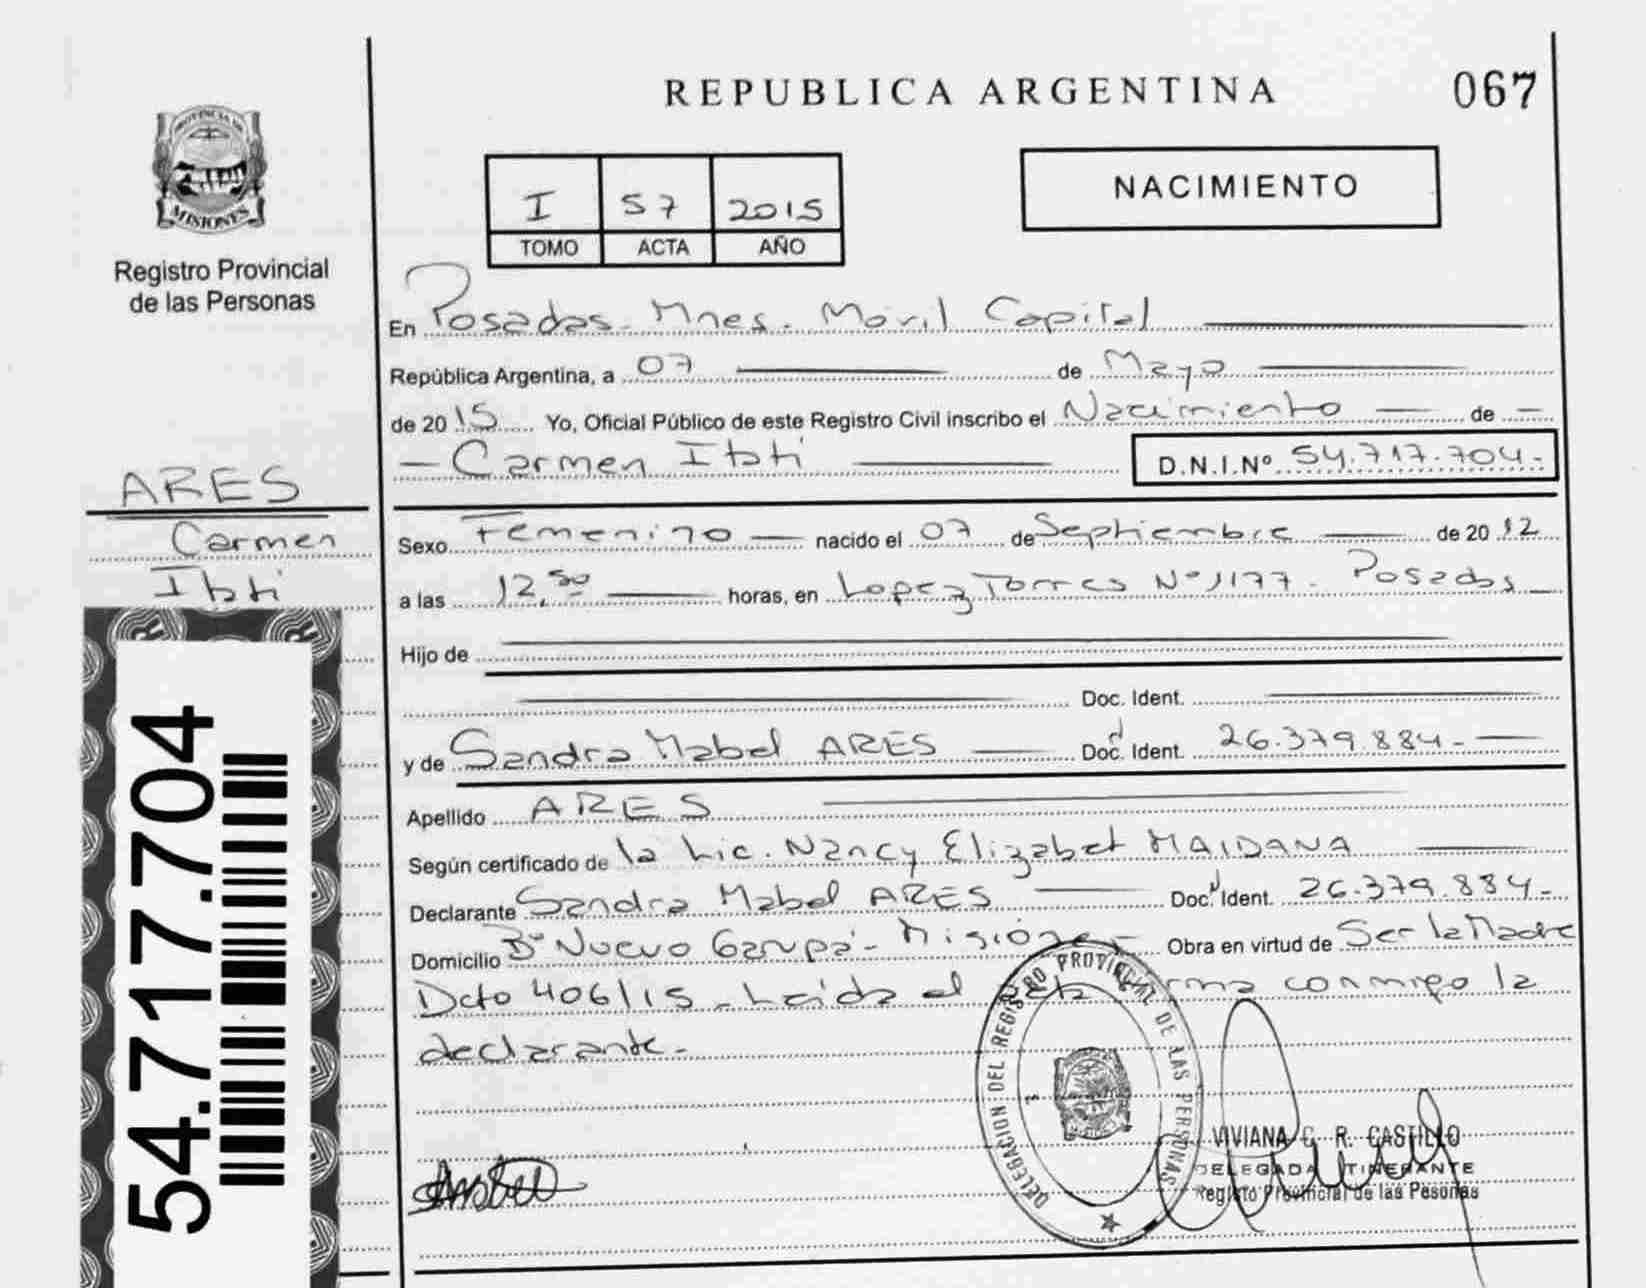 REPUBLICA ARGENTINA
067
PROVINCIA DE
MISIONES
Registro Provincial
de las Personas
I 57 2015
TOMO ACTA AÑO
NACIMIENTO
En Posadas - Mnes. Móvil Capital
República Argentina, a 07 de Mayo
de 2015 Yo, Oficial Público de este Registro Civil inscribo el Nacimiento de
Carmen Itatí D.N.I.Nº 54.717.704-
ARES
Carmen
Itatí
Sexo Femenino nacido el 07 de Septiembre de 2012
a las 12,50 horas, en Lopez Torres Nº 1177. Posadas
Hijo de
Doc. Ident.
y de Sandra Mabel ARES Doc. Ident. 26.379.884-
Apellido ARES
Según certificado de la Lic. Nancy Elizabet MAIDANA
Declarante Sandra Mabel ARES Doc. Ident. 26.379.884-
Domicilio Bº Nuevo Garupá - Misiones - Obra en virtud de Ser la Madre
Dcto 406/15 - Leída el acta firma conmigo la
declarante -
54.717.704
DELEGACION DEL REGISTRO PROVINCIAL DE LAS PERSONAS
VIVIANA C. R. CASTILLO
DELEGADA ITINERANTE
Registo Provincial de las Pesonas